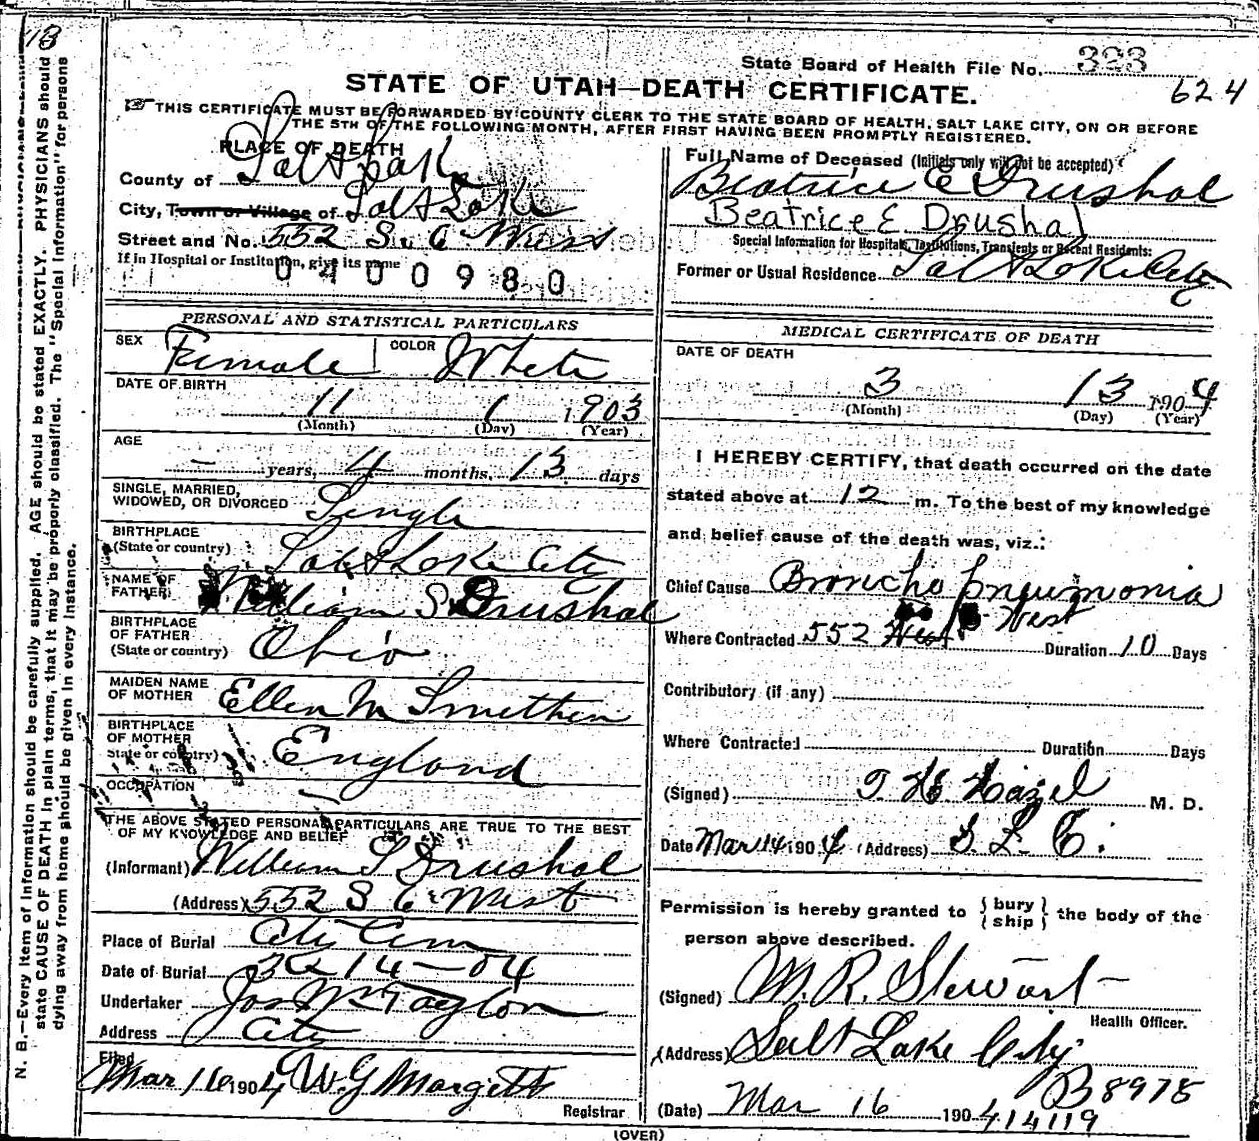 13
State Board of Health File No. 323
624
STATE OF UTAH—DEATH CERTIFICATE.
THIS CERTIFICATE MUST BE FORWARDED BY COUNTY CLERK TO THE STATE BOARD OF HEALTH, SALT LAKE CITY, ON OR BEFORE
THE 5TH OF THE FOLLOWING MONTH, AFTER FIRST HAVING BEEN PROMPTLY REGISTERED.
PLACE OF DEATH
County of Salt Lake
City, Town or Village of Salt Lake
Street and No. 552 S. 6 West
If in Hospital or Institution, give its name
0400980
Full Name of Deceased (Initials only will not be accepted)
Beatrice E Drushal
Beatrice E Drushal
Special Information for Hospitals, Institutions, Transients or Recent Residents:
Former or Usual Residence Salt Lake City
PERSONAL AND STATISTICAL PARTICULARS
SEX Female COLOR White
DATE OF BIRTH
11 1 1903
(Month) (Day) (Year)
AGE
— years, 4 months, 13 days
SINGLE, MARRIED,
WIDOWED, OR DIVORCED Single
BIRTHPLACE
(State or country) Salt Lake City
NAME OF
FATHER William S Drushal
BIRTHPLACE
OF FATHER
(State or country) Ohio
MAIDEN NAME
OF MOTHER Ellen M Smethen
BIRTHPLACE
OF MOTHER
State or country) England
OCCUPATION —
THE ABOVE STATED PERSONAL PARTICULARS ARE TRUE TO THE BEST
OF MY KNOWLEDGE AND BELIEF
(Informant) William S Drushal
(Address) 552 S 6 West
Place of Burial City Cem
Date of Burial 3-14-04
Undertaker Jos Wm Taylor
Address City
Filed
Mar 16 1904 W G Margetts
Registrar
MEDICAL CERTIFICATE OF DEATH
DATE OF DEATH
3 13 1904
(Month) (Day) (Year)
I HEREBY CERTIFY, that death occurred on the date
stated above at 12 m. To the best of my knowledge
and belief cause of the death was, viz.:
Chief Cause Broncho pneumonia
Where Contracted 552 West Duration 10 Days
Contributory (if any)
Where Contracted Duration Days
(Signed) T. H. Hazel M. D.
Date Mar 14 1904 (Address) S. L. C.
Permission is hereby granted to { bury ship } the body of the
person above described.
(Signed) M. R. Stewart
Health Officer.
(Address) Salt Lake City
B 8978
(Date) Mar 16 1904
14119
(OVER)
N. B.—Every item of information should be carefully supplied. AGE should be stated EXACTLY. PHYSICIANS should
state CAUSE OF DEATH in plain terms, that it may be properly classified. The "Special Information" for persons
dying away from home should be given in every instance.